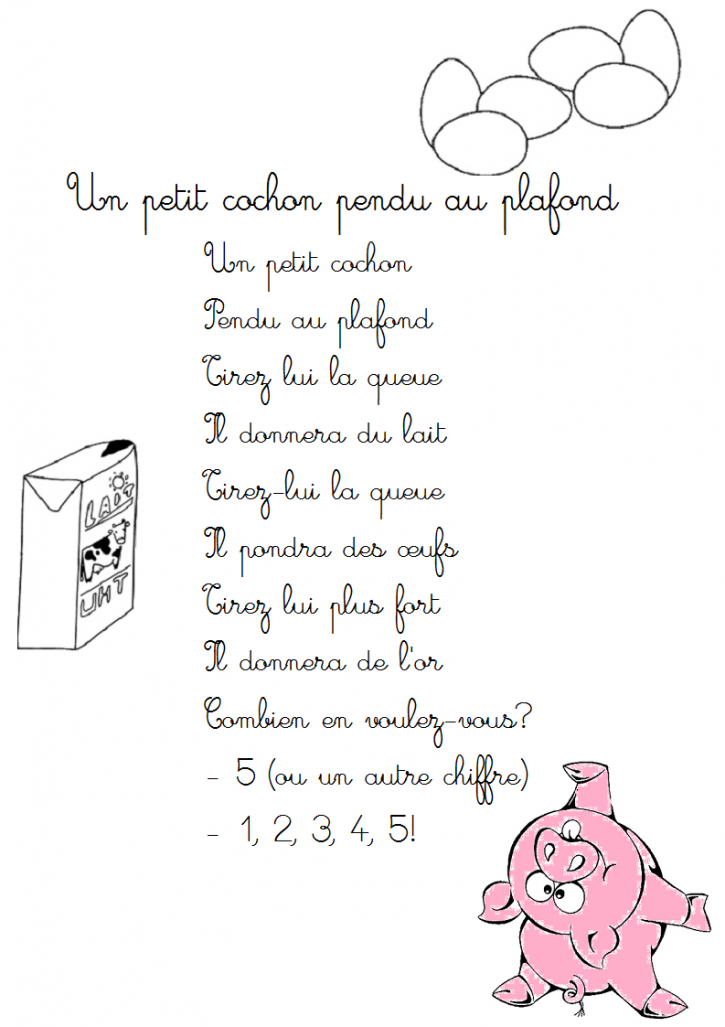 Un petit cochon pendu au plafond
Un petit cochon
Pendu au plafond
Tirez lui la queue
Il donnera du lait
Tirez-lui la queue
Il pondra des œufs
Tirez lui plus fort
Il donnera de l'or
LAIT
UHT
Combien en voulez-vous?
- 5 (ou un autre chiffre)
- 1, 2, 3, 4, 5!